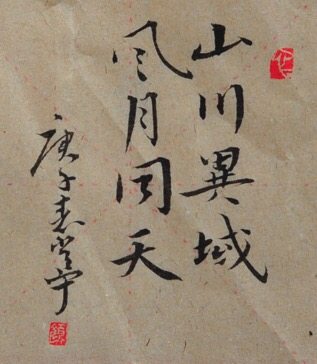 山川異域
风月同天
庚子春